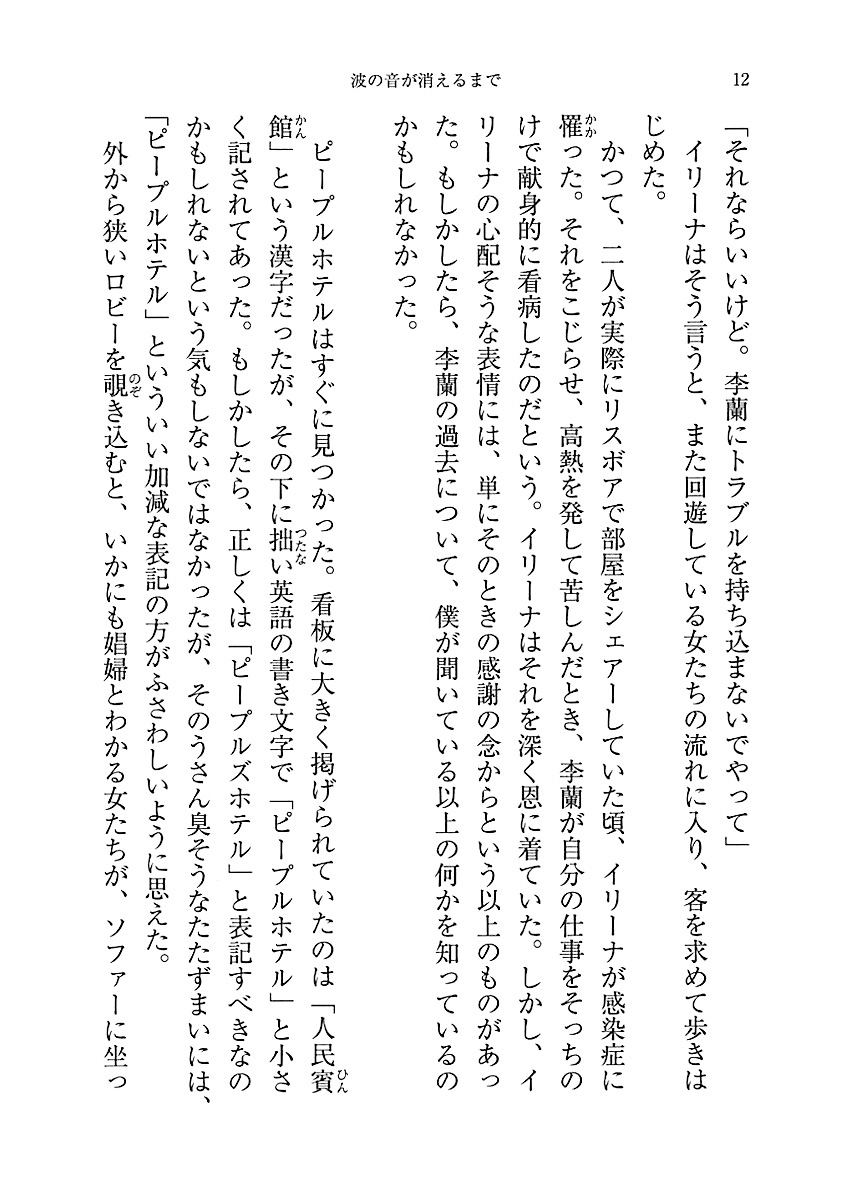 波の音が消えるまで
12
「それならいいけど。李蘭にトラブルを持ち込まないでやって」
イリーナはそう言うと、また回遊している女たちの流れに入り、客を求めて歩きは
じめた。
かつて、二人が実際にリスボアで部屋をシェアーしていた頃、イリーナが感染症に
罹った。それをこじらせ、高熱を発して苦しんだとき、李蘭が自分の仕事をそっちの
かか
けで献身的に看病したのだという。イリーナはそれを深く恩に着ていた。しかし、イ
リーナの心配そうな表情には、単にそのときの感謝の念からという以上のものがあっ
た。もしかしたら、李蘭の過去について、僕が聞いている以上の何かを知っているの
かもしれなかった。
ピープルホテルはすぐに見つかった。看板に大きく掲げられていたのは「人民賓
ひん
館」という漢字だったが、その下に拙い英語の書き文字で「ピープルホテル」と小さ
かん
つたな
く記されてあった。もしかしたら、正しくは「ピープルズホテル」と表記すべきなの
かもしれないという気もしないではなかったが、そのうさん臭そうなたたずまいには、
「ピープルホテル」といういい加減な表記の方がふさわしいように思えた。
外から狭いロビーを覗き込むと、いかにも娼婦とわかる女たちが、ソファーに坐っ
のぞ